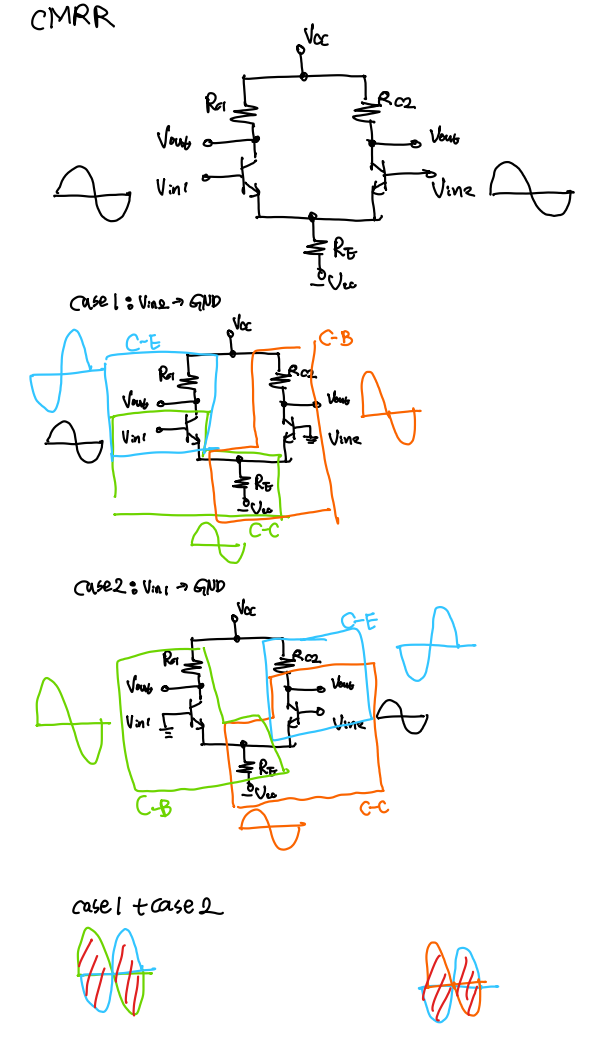 CMRR
Vcc
Rc1
Rc2
Vout
Vout
Vin1
Vin2
RE
-Vcc
Case1 : Vin2 → GND
C-E
Vcc
C-B
Rc1
Rc2
Vout
Vout
Vin1
Vin2
RE
-Vcc
C-C
Case2 : Vin1 → GND
Vcc
C-E
Rc1
Rc2
Vout
Vout
Vin1
Vin2
RE
-Vcc
C-B
C-C
case1 + case2